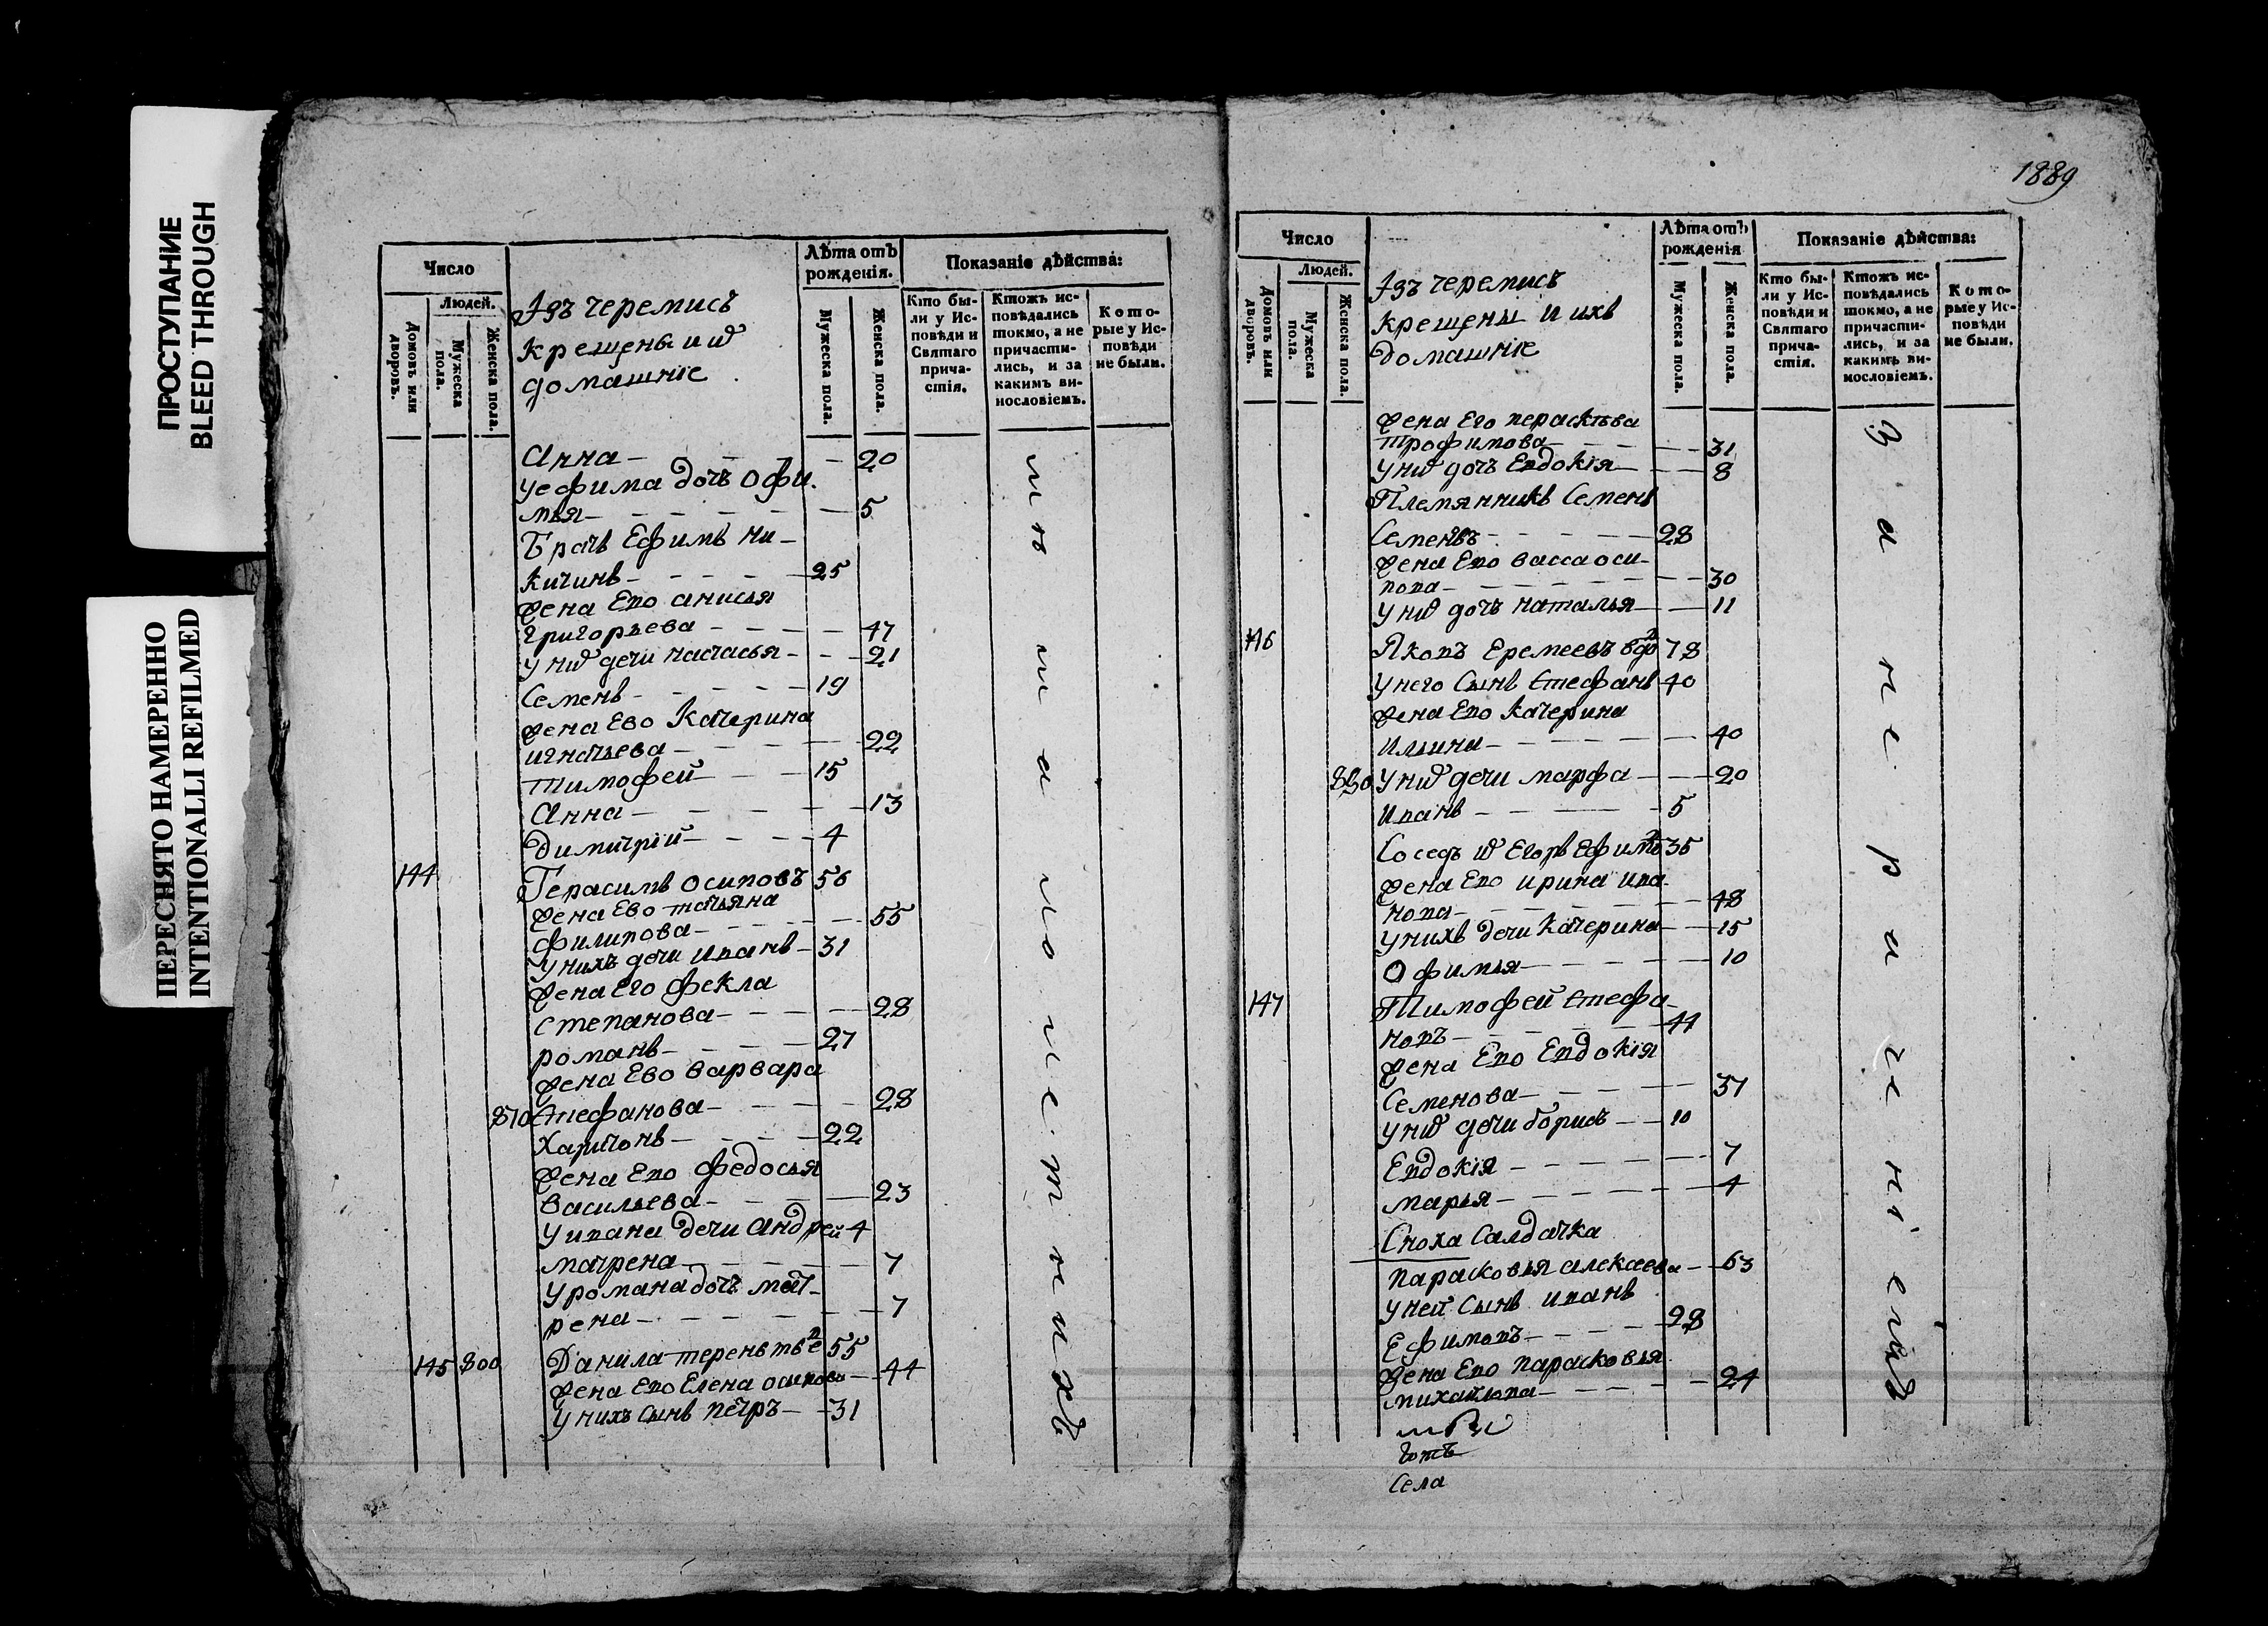 ПРОСТУПАНИЕ
BLEED THROUGH
ПЕРЕСНЯТО НАМЕРЕННО
INTENTIONALLI REFILMED
Число
Людей.
Домовъ или дворовъ.
Мужеска пола.
Женска пола.
Изъ черемисъ
крещены и
домашнiе
Лѣта отъ
рожденія.
Мужеска пола.
Женска пола.
Показаніе дѣйства:
Кто бы-
ли у Ис-
повѣди и
Святаго
прича-
стія.
Ктожъ ис-
повѣдались
токмо, а не
причасти-
лись, и за
какимъ ви-
нословіемъ.
Кото-
рые у Ис-
повѣди
не были.
Анна 20
у ефима дочъ офи-
мья 5
Братъ Ефимъ ни-
китинъ 25
жена Ево анисья
григорьева 47
у них дети настасья 21
Семенъ 19
жена Ево Катерина
игнатьева 22
тимофей 15
Анна 13
димитрiй 4
144 Герасимъ осиповъ 56
жена Ево татьяна
филипова 55
у нихъ дети иванъ 31
жена Его фекла
степанова 28
романъ 27
жена Ево варвара
870 Стефанова 28
Харитонъ 22
жена Ево федосья
васильева 23
у ивана дети андрей 4
матрена 7
у романа дочъ мат-
рена 7
145 800 Данила терентьев 55
жена Ево Елена осипова 44
у нихъ сынъ петръ 31
1889
Число
Людей.
Домовъ или дворовъ.
Мужеска пола.
Женска пола.
Изъ черемисъ
крещены и ихъ
домашнiе
Лѣта отъ
рожденія
Мужеска пола.
Женска пола.
Показаніе дѣйства:
Кто бы-
ли у Ис-
повѣди и
Святаго
прича-
стія.
Ктожъ ис-
повѣдались
токмо, а не
причасти-
лись, и за
какимъ ви-
нословіемъ.
Кото-
рые у Ис-
повѣди
не были.
жена Его параскѣва
трофимова 31
у них дочъ Евдокiя 8
Племянникъ Семенъ
Семенвъ 28
жена Ево васса оси-
пова 30
у них дочъ наталья 11
146 Яковъ Еремеевъ вдов 78
у него Сынъ Стефанъ 40
жена Ево Катерина
Ильина 40
880 у них дети марфа 20
Иванъ 5
Соседъ их Егоръ Ефимов 35
жена Ево ирина ива-
нова 48
у нихъ дети Катерина 15
Офимья 10
147 Тимофей Стефа-
новъ 44
жена Ево Евдокiя
Семенова 37
у них дети борисъ 10
Евдокiя 7
марья 4
Сноха Салдатка
парасковья алексаева 63
у ней Сынъ иванъ
Ефимовъ 28
жена Ево парасковья
михайлова 24
Села
За нерачениемъ